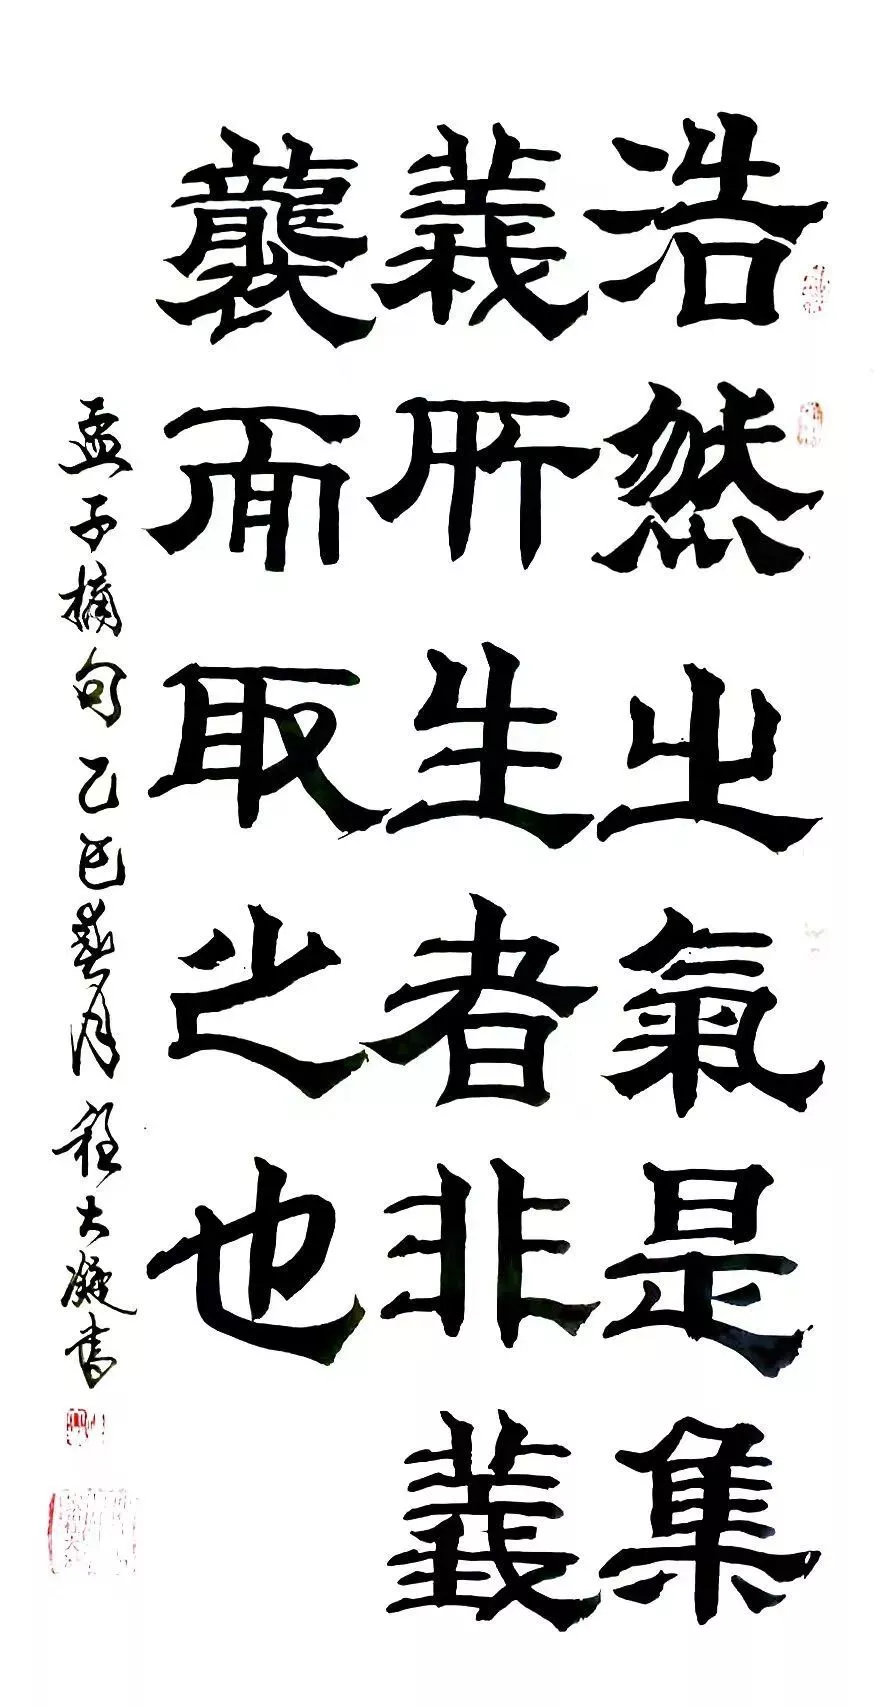 浩然之氣是集
義所生者非義
襲而取之也
孟子摘句乙巳春月程大凝书